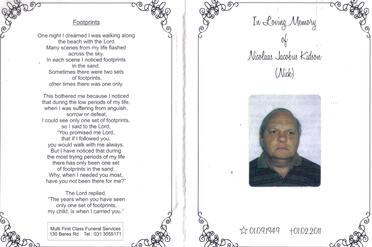 Footprints
One night I dreamed I was walking along
the beach with the Lord.
Many scenes from my life flashed
across the sky.
In each scene I noticed footprints
in the sand.
Sometimes there were two sets
of footprints,
other times there was one only.
This bothered me because I noticed
that during the low periods of my life,
when I was suffering from anguish,
sorrow or defeat,
I could see only one set of footprints,
so I said to the Lord,
"You promised me Lord,
that if I followed you,
you would walk with me always.
But I have noticed that during
the most trying periods of my life
there has only been one set
of footprints in the sand.
Why, when I needed you most,
have you not been there for me?"
The Lord replied,
"The years when you have seen
only one set of footprints,
my child, is when I carried you."
Multi First Class Funeral Services
130 Berea Rd Tel : 031 3055171
In Loving Memory
of
Nicolaas Jacobus Kidson
(Nick)
☆ 01.09.1949 †01.02.2011